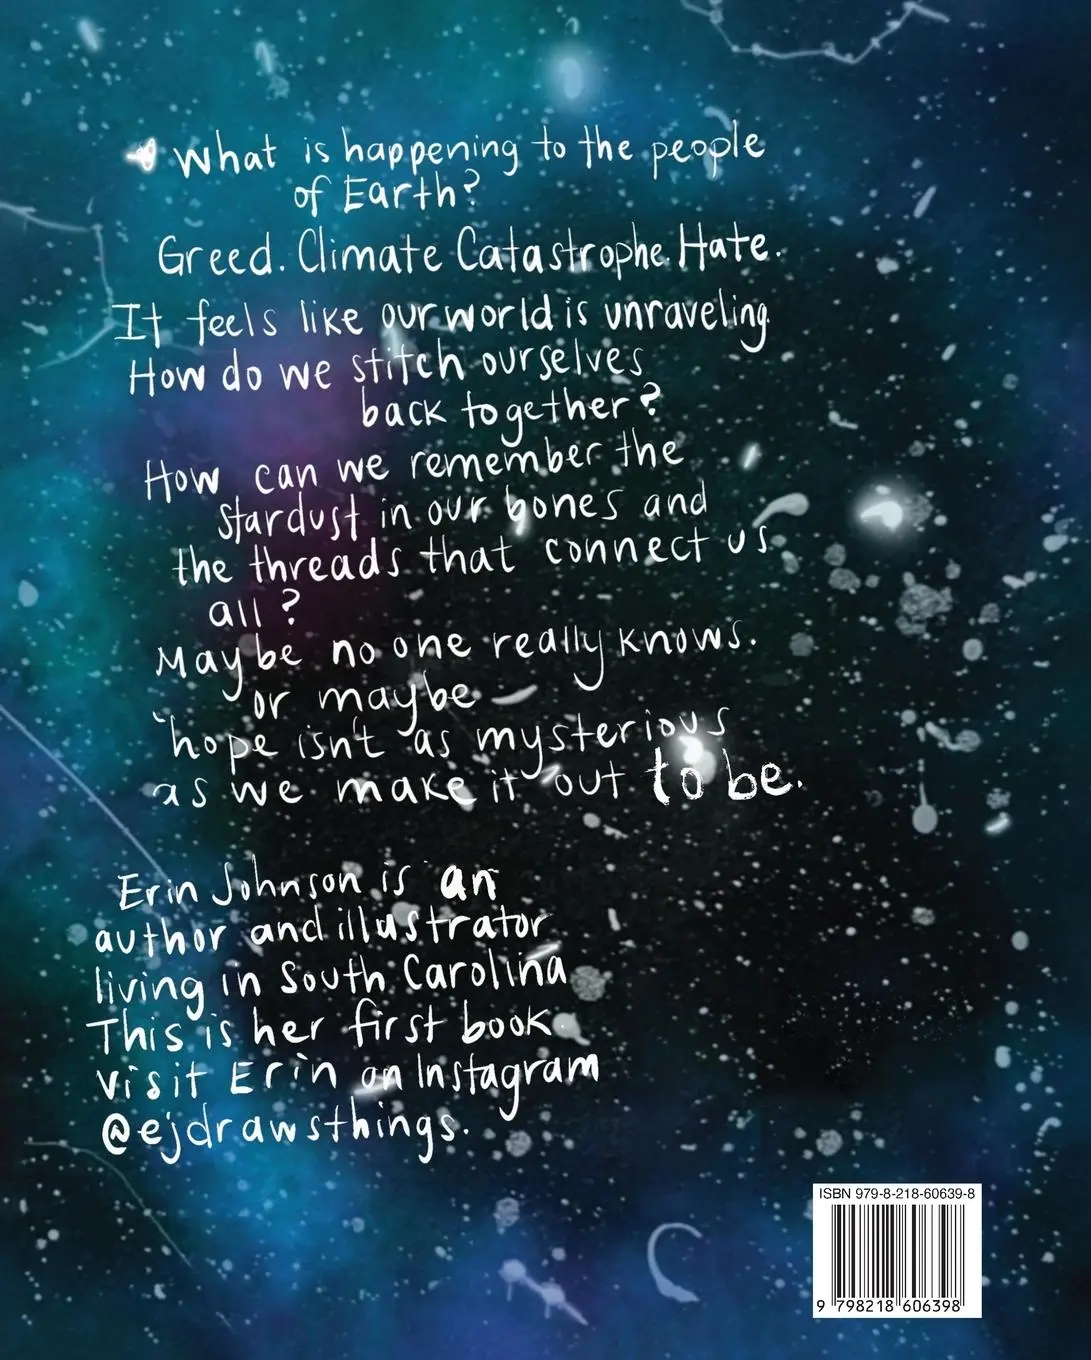 What is happening to the people
of Earth?
Greed. Climate Catastrophe. Hate.
It feels like our world is unraveling.
How do we stitch ourselves
back together?
How can we remember the
stardust in our bones and
the threads that connect us
all?
Maybe no one really knows.
or maybe
hope isn't as mysterious
as we make it out to be.
Erin Johnson is an
author and illustrator
living in South Carolina
This is her first book.
visit Erin on Instagram
@ejdrawsthings.
ISBN 979-8-218-60639-8
9 798218 606398